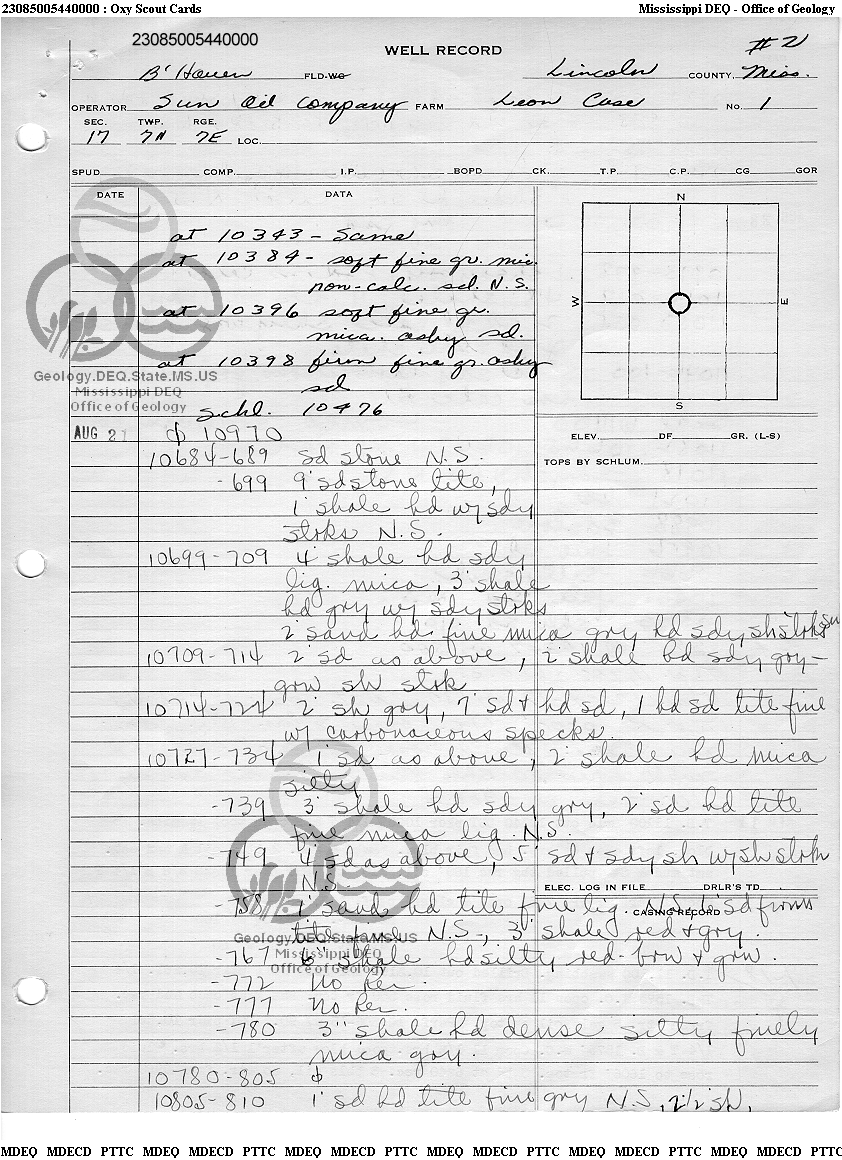 23085005440000 : Oxy Scout Cards Mississippi DEQ - Office of Geology
23085005440000
WELL RECORD #2
B'Haven FLD-WC Lincoln COUNTY, Miss.
OPERATOR Sun Oil Company FARM Leon Case NO. 1
SEC. TWP. RGE.
17 7N 7E LOC.
SPUD COMP. I.P. BOPD CK. T.P. C.P. CG GOR
DATE DATA
N
W E
S
at 10343 - Same
at 10384 - soft fine gr. mic.
non-calc. sd. N.S.
at 10396 soft fine gr.
mica. ashy sd.
at 10398 firm fine gr. ashy
sd
Geology.DEQ.State.MS.US
Mississippi DEQ
Office of Geology
Schl. 10476
AUG 21 10970
ELEV. DF. GR. (L-S)
10684-689 sd stone N.S.
TOPS BY SCHLUM.
-699 9' sdstone tite,
1' shale hd w/ sdy
strks N.S.
10699-709 4' shale hd sdy
lig. mica, 3' shale
hd gry w/ sdy strks
2' sand hd fine mica gry hd sdy sh strks
10709-714 2' sd as above, 2' shale hd sdy gry-
grn sh strk
10714-724 2' sh gry, 7' sd & hd sd, 1 hd sd tite fine
w/ carbonaceous specks.
10727-734 1' sd as above, 2' shale hd mica
silty
-739 3' shale hd sdy gry, 2' sd hd tite
fine mica lig. N.S.
-749 4' sd as above, 5' sd & sdy sh w/ sh strks
N.S.
ELEC. LOG IN FILE DRLR'S TD
-758 sand hd tite fine lig. N.S, 6' sd firm
CASING RECORD
tite fine N.S., 3' shale red & gry
Geology.DEQ.State.MS.US
Mississippi DEQ
Office of Geology
-767 6' shale hd silty red-brn & grn.
-772 No Rec.
-777 No Rec.
-780 3" shale hd dense silty finely
mica gry.
10780-805
10805-810 1' sd hd tite fine gry N.S, 2 1/2' sh,
MDEQ MDECD PTTC MDEQ MDECD PTTC MDEQ MDECD PTTC MDEQ MDECD PTTC MDEQ MDECD PTTC MDEQ MDECD PTTC